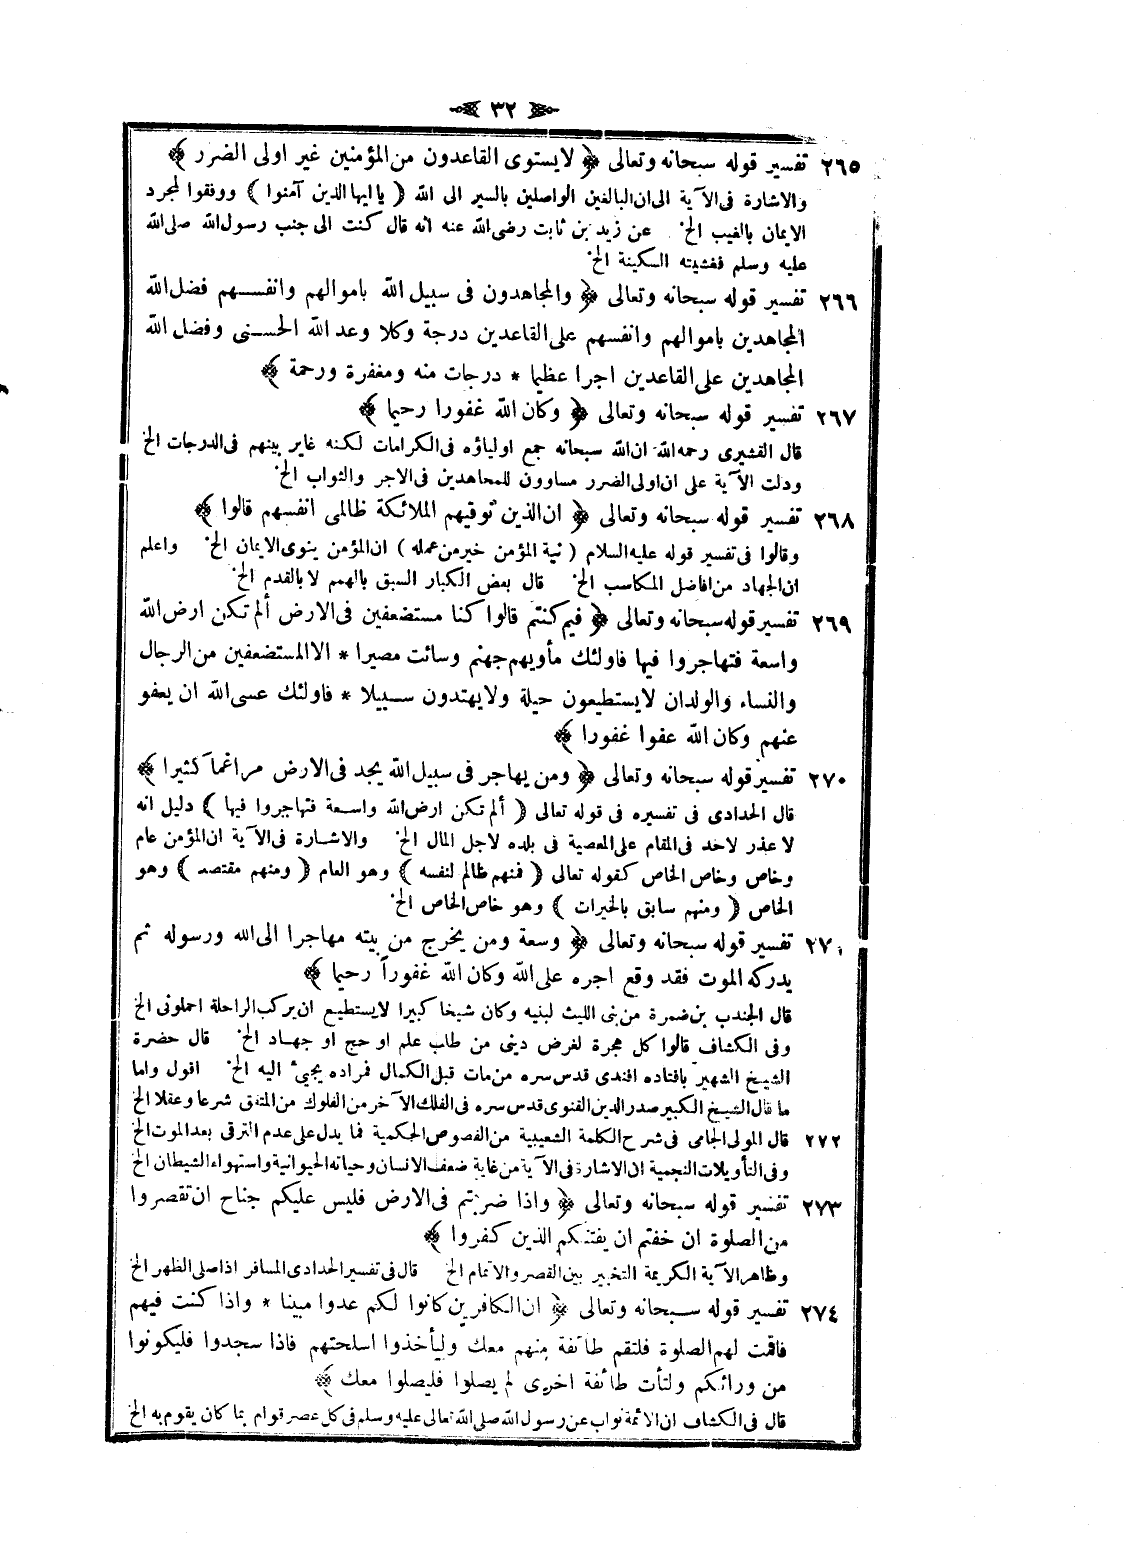 ٣٢
٢٦٥ تفسير قوله سبحانه وتعالى ﴿ لايستوى القاعدون من المؤمنين غير اولى الضرر ﴾
والاشارة فى الآية الى ان البالغين الواصلين بالسير الى الله ( يا ايها الذين آمنوا ) ووفقوا لمجرد
الايمان بالغيب الخ عن زيد بن ثابت رضى الله عنه انه قال كنت الى جنب رسول الله صلى الله
عليه وسلم فغشيته السكينة الخ
٢٦٦ تفسير قوله سبحانه وتعالى ﴿ والمجاهدون فى سبيل الله باموالهم وانفسهم فضل الله
المجاهدين باموالهم وانفسهم على القاعدين درجة وكلا وعد الله الحسنى وفضل الله
المجاهدين على القاعدين اجرا عظيما * درجات منه ومغفرة ورحمة ﴾
٢٦٧ تفسير قوله سبحانه وتعالى ﴿ وكان الله غفورا رحيما ﴾
قال القشيرى رحمه الله ان الله سبحانه جمع اولياؤه فى الكرامات لكنه غاير بينهم فى الدرجات الخ
ودلت الآية على ان اولى الضرر مساوون للمجاهدين فى الاجر والثواب الخ
٢٦٨ تفسير قوله سبحانه وتعالى ﴿ ان الذين توفيهم الملائكة ظالمى انفسهم قالوا ﴾
وقالوا فى تفسير قوله عليه السلام ( نية المؤمن خير من عمله ) ان المؤمن ينوى الايمان الخ واعلم
ان الجهاد من افاضل المكاسب الخ قال بعض الكبار السبق بالهمم لا بالقدم الخ
٢٦٩ تفسير قوله سبحانه وتعالى ﴿ فيم كنتم قالوا كنا مستضعفين فى الارض ألم تكن ارض الله
واسعة فتهاجروا فيها فاولئك مأويهم جهنم وسائت مصيرا * الا المستضعفين من الرجال
والنساء والولدان لايستطيعون حيلة ولايهتدون سبيلا * فاولئك عسى الله ان يعفو
عنهم وكان الله عفوا غفورا ﴾
٢٧٠ تفسير قوله سبحانه وتعالى ﴿ ومن يهاجر فى سبيل الله يجد فى الارض مراغما كثيرا ﴾
قال الحدادى فى تفسيره فى قوله تعالى ( ألم تكن ارض الله واسعة فتهاجروا فيها ) دليل انه
لا عذر لاحد فى المقام على المعصية فى بلده لاجل المال الخ والاشارة فى الآية ان المؤمن عام
وخاص وخاص الخاص كقوله تعالى ( فمنهم ظالم لنفسه ) وهو العام ( ومنهم مقتصد ) وهو
الخاص ( ومنهم سابق بالخيرات ) وهو خاص الخاص الخ
٢٧١ تفسير قوله سبحانه وتعالى ﴿ وسعة ومن يخرج من بيته مهاجرا الى الله ورسوله ثم
يدركه الموت فقد وقع اجره على الله وكان الله غفوراً رحيما ﴾
قال الجندب بن ضمرة من بنى الليث لبنيه وكان شيخا كبيرا لايستطيع ان يركب الراحلة احملونى الخ
وفى الكشاف قالوا كل هجرة لغرض دينى من طلب علم او حج او جهاد الخ قال حضرة
الشيخ الشهير بافتاده افندى قدس سره من مات قبل الكمال فمراده يجيئ اليه الخ اقول واما
ما قال الشيخ الكبير صدر الدين القنوى قدس سره فى الفلك الآخر من الفلوك من المتفق شرعا وعقلا الخ
٢٧٢ قال المولى الجامى فى شرح الكلمة الشعيبية من الفصوص الحكمية فما يدل على عدم الترقى بعد الموت الخ
وفى التأويلات النجمية ان الاشارة فى الآية من غاية ضعف الانسان وحياته الحيوانية واستهواء الشيطان الخ
٢٧٣ تفسير قوله سبحانه وتعالى ﴿ واذا ضربتم فى الارض فليس عليكم جناح ان تقصروا
من الصلوة ان خفتم ان يفتنكم الذين كفروا ﴾
وظاهر الآية الكريمة التخيير بين القصر والاتمام الخ قال فى تفسير الحدادى المسافر اذا صلى الظهر الخ
٢٧٤ تفسير قوله سبحانه وتعالى ﴿ ان الكافرين كانوا لكم عدوا مبينا * واذا كنت فيهم
فاقمت لهم الصلوة فلتقم طائفة منهم معك وليأخذوا اسلحتهم فاذا سجدوا فليكونوا
من ورائكم ولتأت طائفة اخرى لم يصلوا فليصلوا معك ﴾
قال فى الكشاف ان الائمة نواب عن رسول الله صلى الله تعالى عليه وسلم فى كل عصر قوام بما كان يقوم به الخ